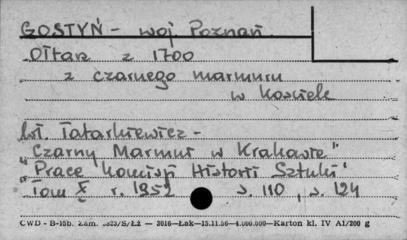 GOSTYŃ - woj. Poznań
Ołtarz z 1700
z czarnego marmuru
w Kościele
Wł. Tatarkiewicz -
"Czarny Marmur w Krakowie"
"Prace Komisji Historii Sztuki"
Tom X r. 1952 s. 110, s. 124
CWD - B-15b. Zam. 5823/S/Łż — 3016—Łak—15.11.56—4.000.000—Karton kl. IV A1/200 g